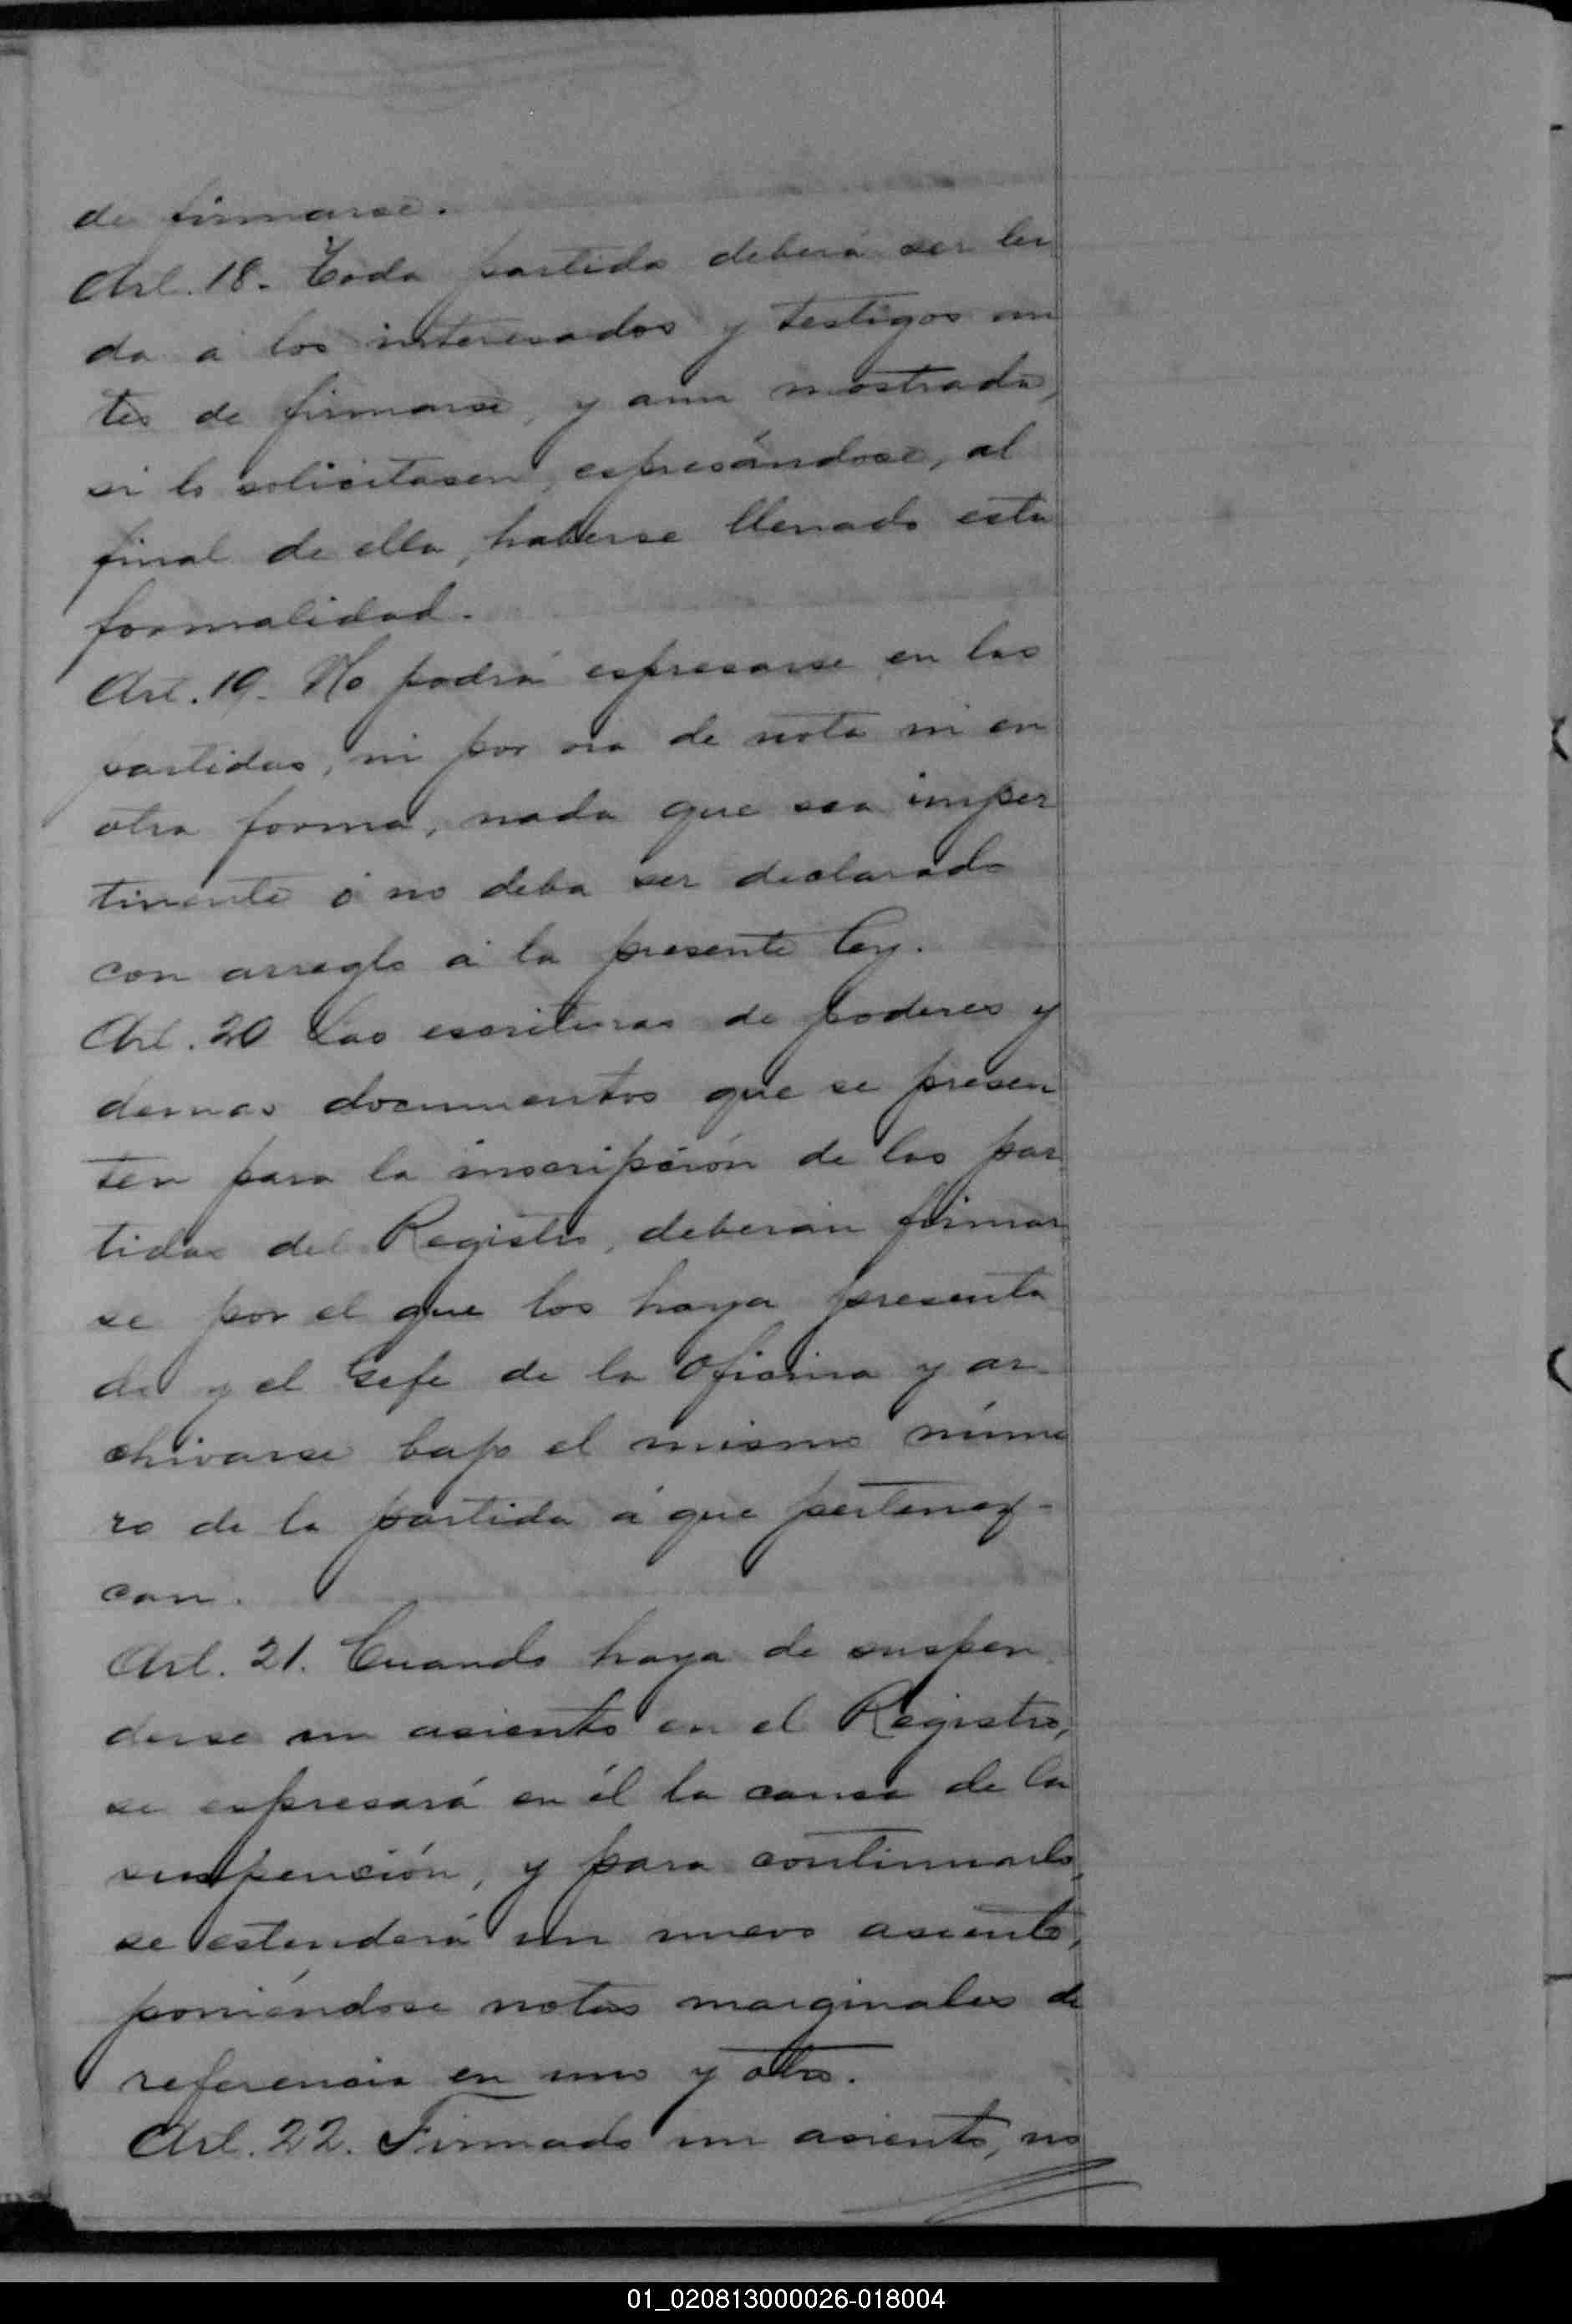 de firmarse.
Art. 18. Toda partida deberá ser lei
da á los interesados y testigos an
tes de firmarse, y aun mostrada,
si lo solicitasen, espresándose, al
final de ella, haberse llenado esta
formalidad.
Art. 19. No podrá espresarse en las
partidas, ni por via de nota ni en
otra forma, nada que sea imper
tinente ó no deba ser declarado
con arreglo á la presente ley.
Art. 20 Las escrituras de poderes y
demas documentos que se presen
ten para la inscripción de las par
tidas del Registro, deberán firmar
se por el que los haya presenta
do y el Gefe de la Oficina y ar-
chivarse bajo el mismo núme
ro de la partida á que pertenez-
can.
Art. 21. Cuando haya de suspen
derse un asiento en el Registro,
se espresará en él la causa de la
suspención, y para continuarlo,
se estenderá un nuevo asiento,
poniéndose notas marginales de
referencia en uno y otro.
Art. 22. Firmado un asiento, no
01_020813000026-018004